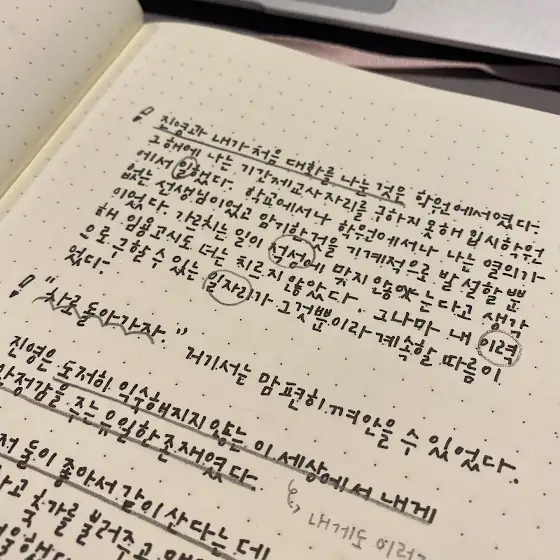 진영과 내가 처음 대화를 나눈 것은 학원에서였다.
그 해에 나는 기간제교사 자리를 구하지 못해 입시학원
에서 일했다. 학교에서나 학원에서나 나는 열의가
없는 선생님이었고 암기한 것을 기계적으로 발설할 뿐
이었다. 가르치는 일이 적성에 맞지 않았는다고 생각
해 임용고시도 더는 치르지 않았다. 그나마 내 이력
으로 구할 수 있는 일자리가 그것뿐이라 계속할 따름이
었다.
"차로 돌아가자."
거기서는 맘 편히 껴안을 수 있었다.
진영은 도저히 익숙해지지 않는 이 세상에서 내게
안정감을 주는 유일한 존재였다.
둘이 좋아서 같이 산다는데
내게도 이러
불러주고